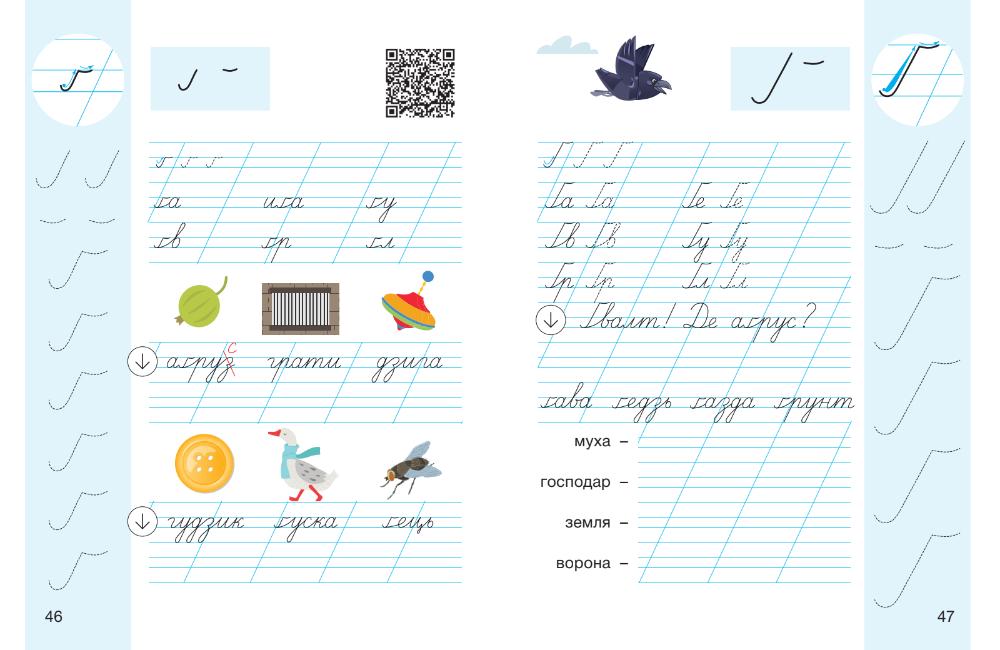 ґ ґ ґ
ґа иґа ґу
ґв ґр ґл
с
аґруз грати дзиґа
гудзик ґуска ґець
46
Ґ Ґ Ґ
Ґа Ґа Ґе Ґе
Ґв Ґв Ґу Ґу
Ґр Ґр Ґл Ґл
Ґвалт! Де аґрус?
ґава ґедзь ґазда ґрунт
муха –
господар –
земля –
ворона –
47